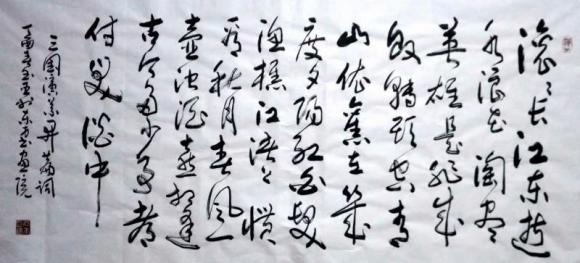 滚滚长江东逝
水浪花淘尽
英雄是非成
败转头空青
山依旧在几
度夕阳红白发
渔樵江渚上惯
看秋月春风一
壶浊酒喜相逢
古今多少事都
付笑谈中
三国演义开篇词
丁酉 书画院